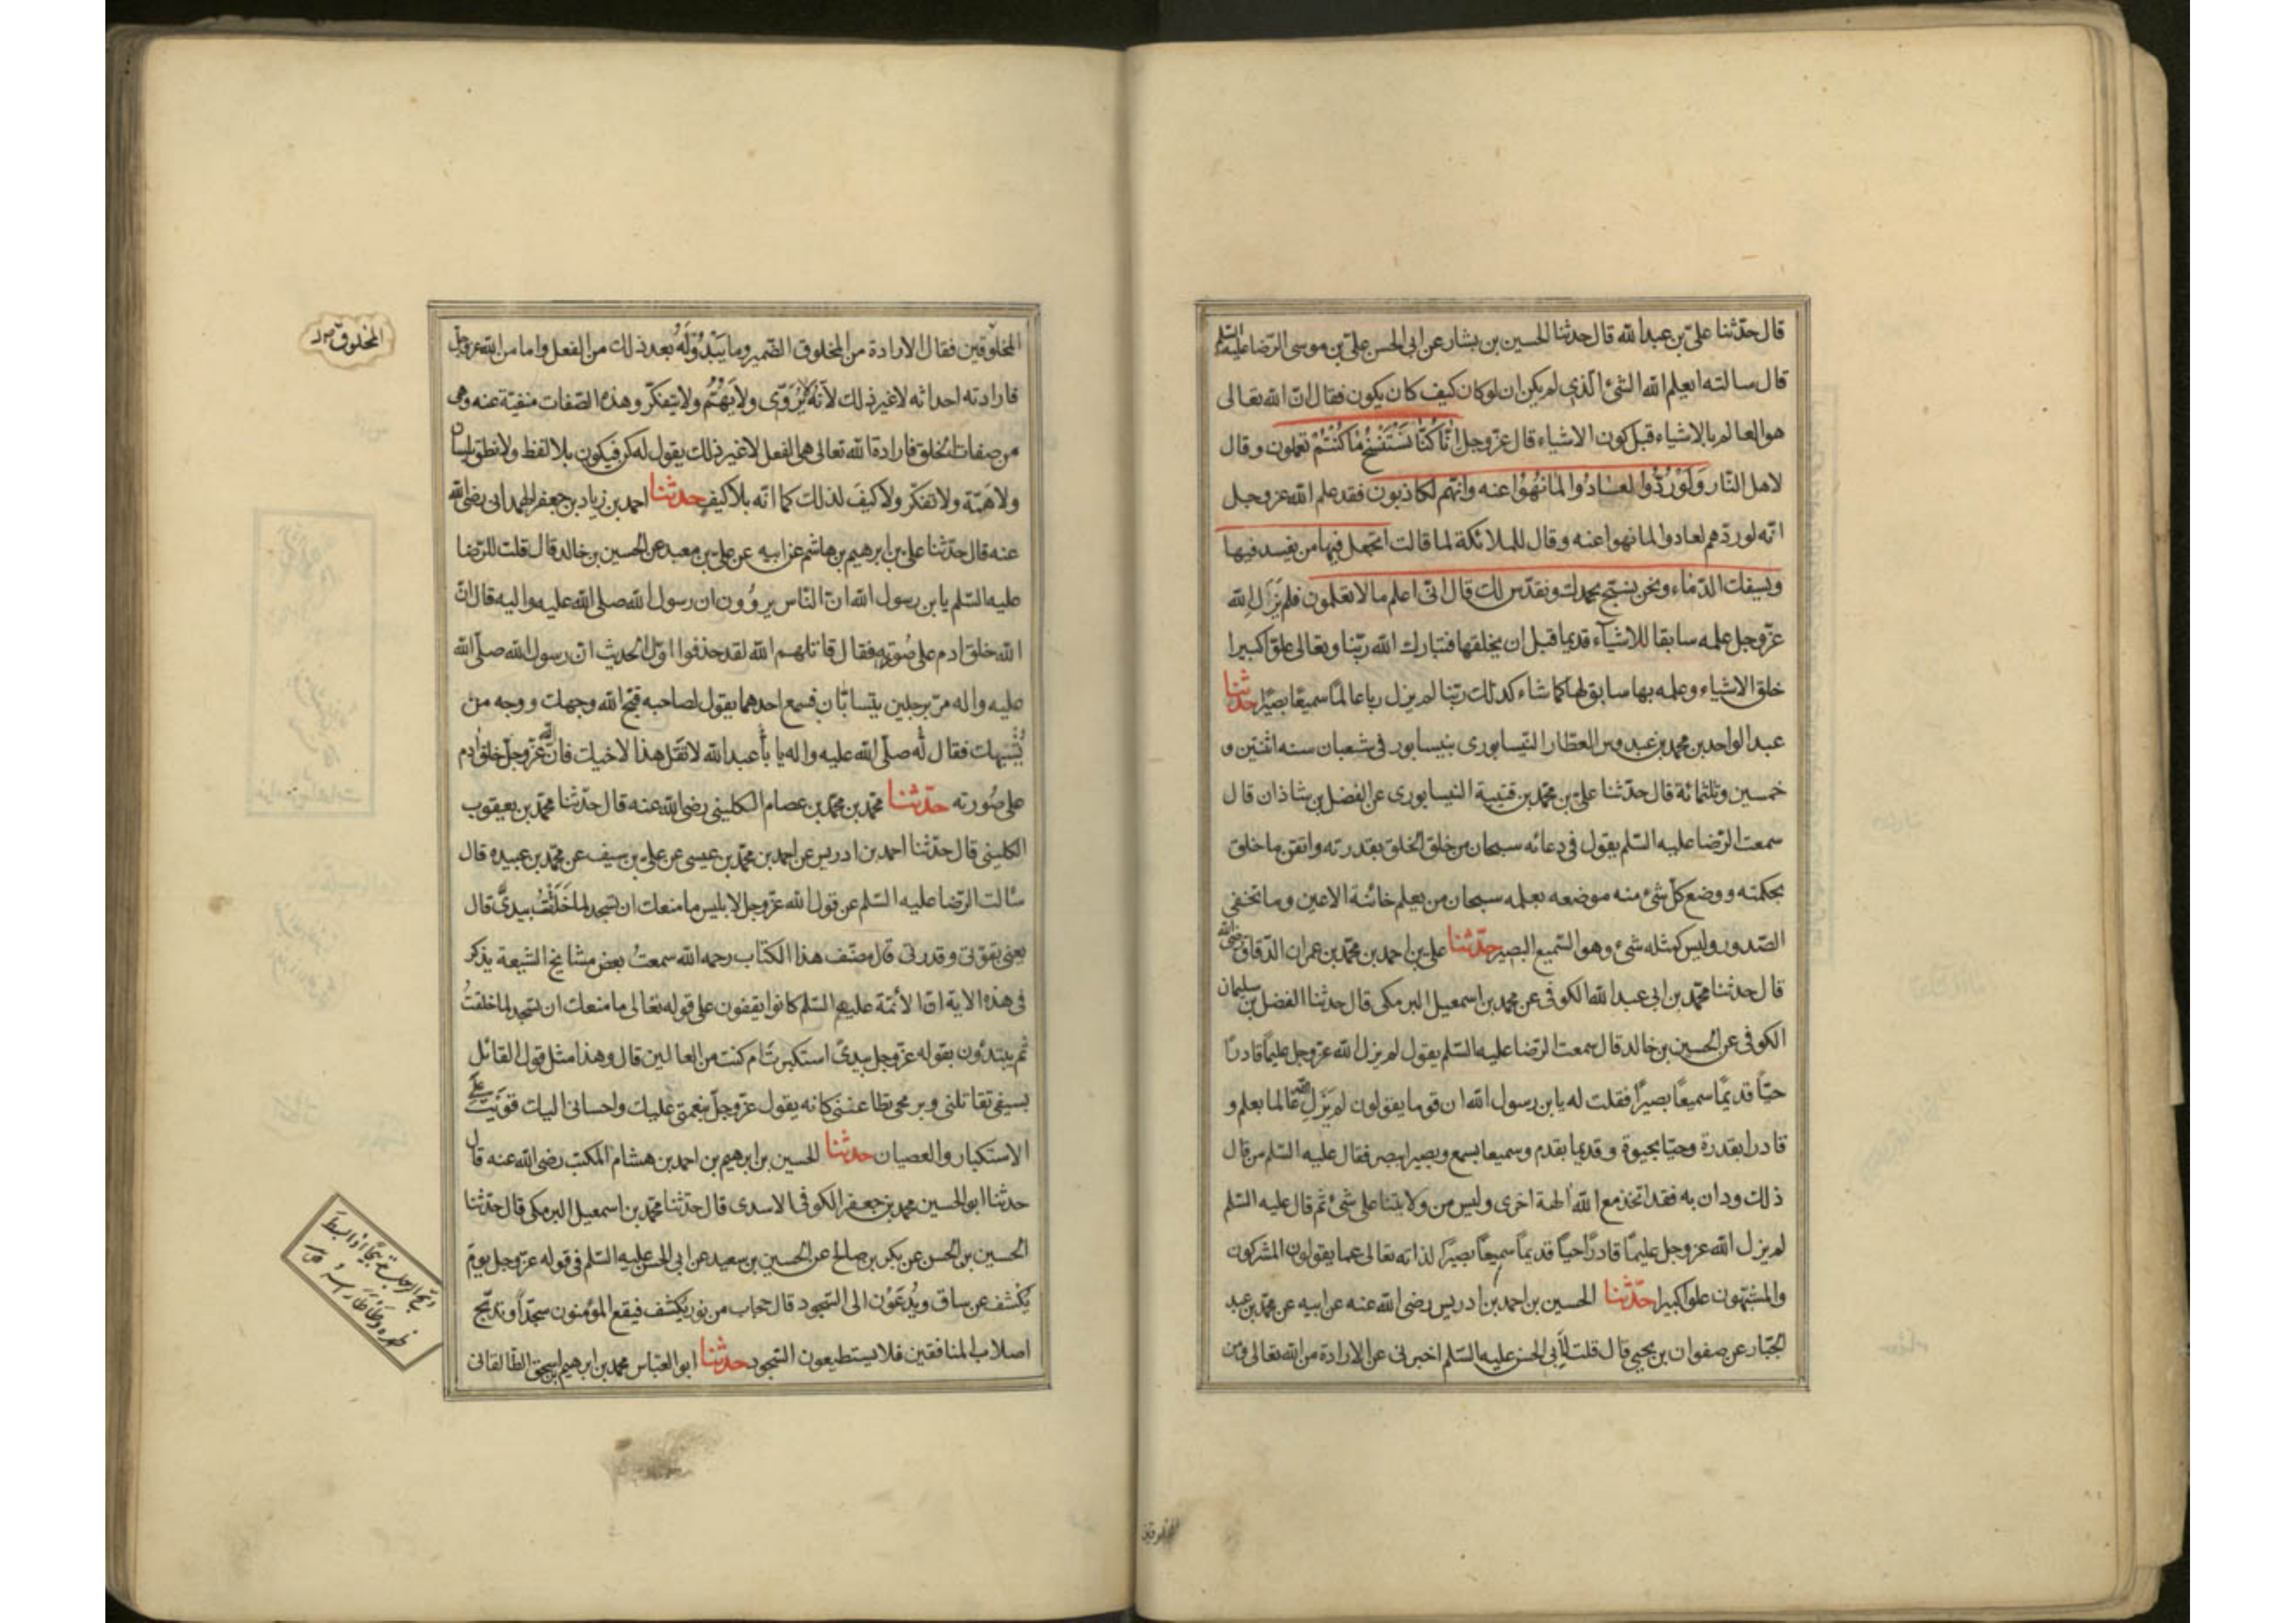 قال حدّثنا علىّ بن عبدالله قال حدثنا الحسين بن بشار عن ابى الحسن علىّ بن موسى الرّضا عليه السّلم
قال سالته ايعلم الله الشئ الّذى لم يكن ان لو كان كيف كان يكون فقال انّ الله تعالى
هو العالم بالاشياء قبل كون الاشياء قال عزّوجل انّا كنّا نستنسخ ما كنتم تعملون وقال
لاهل النّار ولو رُدّوا لعادوا لما نهوا عنه وانّهم لكاذبون فقد علم الله عزوجل
انّه لو ردّهم لعادوا لما نهوا عنه وقال للملائكة لما قالت اتجعل فيها من يفسد فيها
ويسفك الدّماء ونحن نسبّح بحمدك ونقدّس لك قال انّى اعلم ما لا تعلمون فلم يزل الله
عزّوجل علمه سابقا للاشيآء قديما قبل ان يخلقها فتبارك الله ربّنا وتعالى علوّا كبيرا
خلق الاشياء وعلمه بها سابق لها كما شاء كذلك ربّنا لم يزل ربا عالمًا سميعًا بصيرًا حدثنا
عبد الواحد بن محمد بن عبدوس العطّار النّيسابورى بنيسابور فى شعبان سنه اثنتين و
خمسين وثلثمائة قال حدّثنا علىّ بن محمّد بن قتيبة النيسابورى عن الفضل بن شاذان قال
سمعت الرّضا عليه السّلم يقول فى دعائه سبحان من خلق الخلق بقدرته واتقن ما خلق
بحكمته ووضع كلّ شئ منه موضعه بعلمه سبحان من يعلم خائنة الاعين وما تخفى
الصّدور وليس كمثله شئ وهو السّميع البصير حدّثنا على بن احمد بن محمّد بن عمران الدّقاق رضى الله
قال حدثنا محمّد بن ابى عبدالله الكوفى عن محمد بن اسمعيل البرمكى قال حدثنا الفضل بن سليمان
الكوفى عن الحسين بن خالد قال سمعت الرّضا عليه السّلم يقول لم يزل الله عزّوجل عليمًا قادرًا
حيّاً قديمًا سميعًا بصيرًا فقلت له يابن رسول الله ان قوما يقولون لم يَزَلِ الله عالما بعلم و
قادرا بقدرة وحيّا بحيوة وقديما بقدم وسميعا بسمع وبصيرا ببصر فقال عليه السّلم من قال
ذلك ودان به فقد اتخذ مع الله الهة اخرى وليس من ولايتنا على شئ ثمّ قال عليه السّلم
لم يزل الله عزوجل عليمًا قادرًا حيّاً قديماً سميعاً بصيرًا لذاته تعالى عما يقولون المشركون
والمشبّهون علوا كبيرا حدّثنا الحسين بن احمد بن ادريس رضى الله عنه عن ابيه عن محمّد بن عبد
الجبّار عن صفوان بن يحيى قال قلت لابى الحسن عليه السّلم اخبرنى عن الارادة من الله تعالى ومن
المخلوقين
المخلوقين فقال الارادة من المخلوق الضّمير وما يبدو له بعد ذلك من الفعل واما من الله عزوجل
فارادته احداثه لا غير ذلك لانّه لا يُرَوّى ولا يَهُمّ ولا يتفكّر وهذه الصّفات منفيّة عنه وهى
من صفات الخلق فارادة الله تعالى هى الفعل لا غير ذلك يقول له كن فيكون بلا لفظ ولا نطق بلسان
ولا همّة ولا تفكّر ولا كيفَ لذلك كما انّه بلا كيف حدّثنا احمد بن زياد بن جعفر الهمدانى رضى الله
عنه قال حدّثنا على بن ابرهيم بن هاشم عن ابيه عن على بن معبد عن الحسين بن خالد قال قلت للرّضا
عليه السّلم يابن رسول الله انّ النّاس يروُون ان رسول الله صلى الله عليه واله قال انّ
الله خلق ادم على صُورته فقال قاتلهم الله لقد حذفوا اوّل الحديث ان رسول الله صلّى الله
عليه واله مرّ برجلين يتسابّان فسمع احدهما يقول لصاحبه قبّح الله وجهك ووجه من
يُشبهك فقال له صلّى الله عليه واله يا با عبدالله لا تقل هذا لاخيك فانّ الله عزّوجلّ خلق ادم
على صُورته حدّثنا محمّد بن محمّد بن عصام الكلينى رضى الله عنه قال حدّثنا محمّد بن يعقوب
الكلينى قال حدّثنا احمد بن ادريس عن احمد بن محمّد بن عيسى عن على بن سيف عن محمّد بن عبيده قال
سالت الرّضا عليه السّلم عن قول الله عزّوجل لابليس ما منعك ان تسجد لما خَلَقْتُ بيدىّ قال
يعنى بقوّتى وقدرتى قال مصنّف هذا الكتاب رحمه الله سمعتُ بعض مشايخ الشيعة يذكر
فى هذه الاية انّ الائمّة عليهم السّلم كانوا يقفون على قوله تعالى ما منعك ان تسجد لما خلقتُ
ثم يبتدؤن بقوله عزّوجل بيدىّ استكبرت ام كنت من العالين قال وهذا مثل قول القائل
بسيفى تقاتلنى وبرمحى تطاعننى كانه يقول عزّوجلّ بنعمتى عليك واحسانى اليك قويتَ على
الاستكبار والعصيان حدثنا الحسين بن ابرهيم بن احمد بن هشام المكتب رضى الله عنه قال
حدثنا ابوالحسين محمد بن جعفر الكوفى الاسدى قال حدّثنا محمّد بن اسمعيل البرمكى قال حدّثنا
الحسين بن الحسن عن بكر بن صالح عن الحسين بن سعيد عن ابى الحسن عليه السّلم فى قوله عزّوجل يوم
يُكشف عن ساق ويُدعَوْن الى السّجود قال حجاب من نور يكشف فيقع المؤمنون سجّداً وتدبّج
اصلاب المنافقين فلا يستطيعون السّجود حدثنا ابو العبّاس محمد بن ابرهيم بن اسحق الطّالقانى
المخلوق
دبّج الرجل تدبيجًا اذا بسط
ظهره وطأطأ راسه